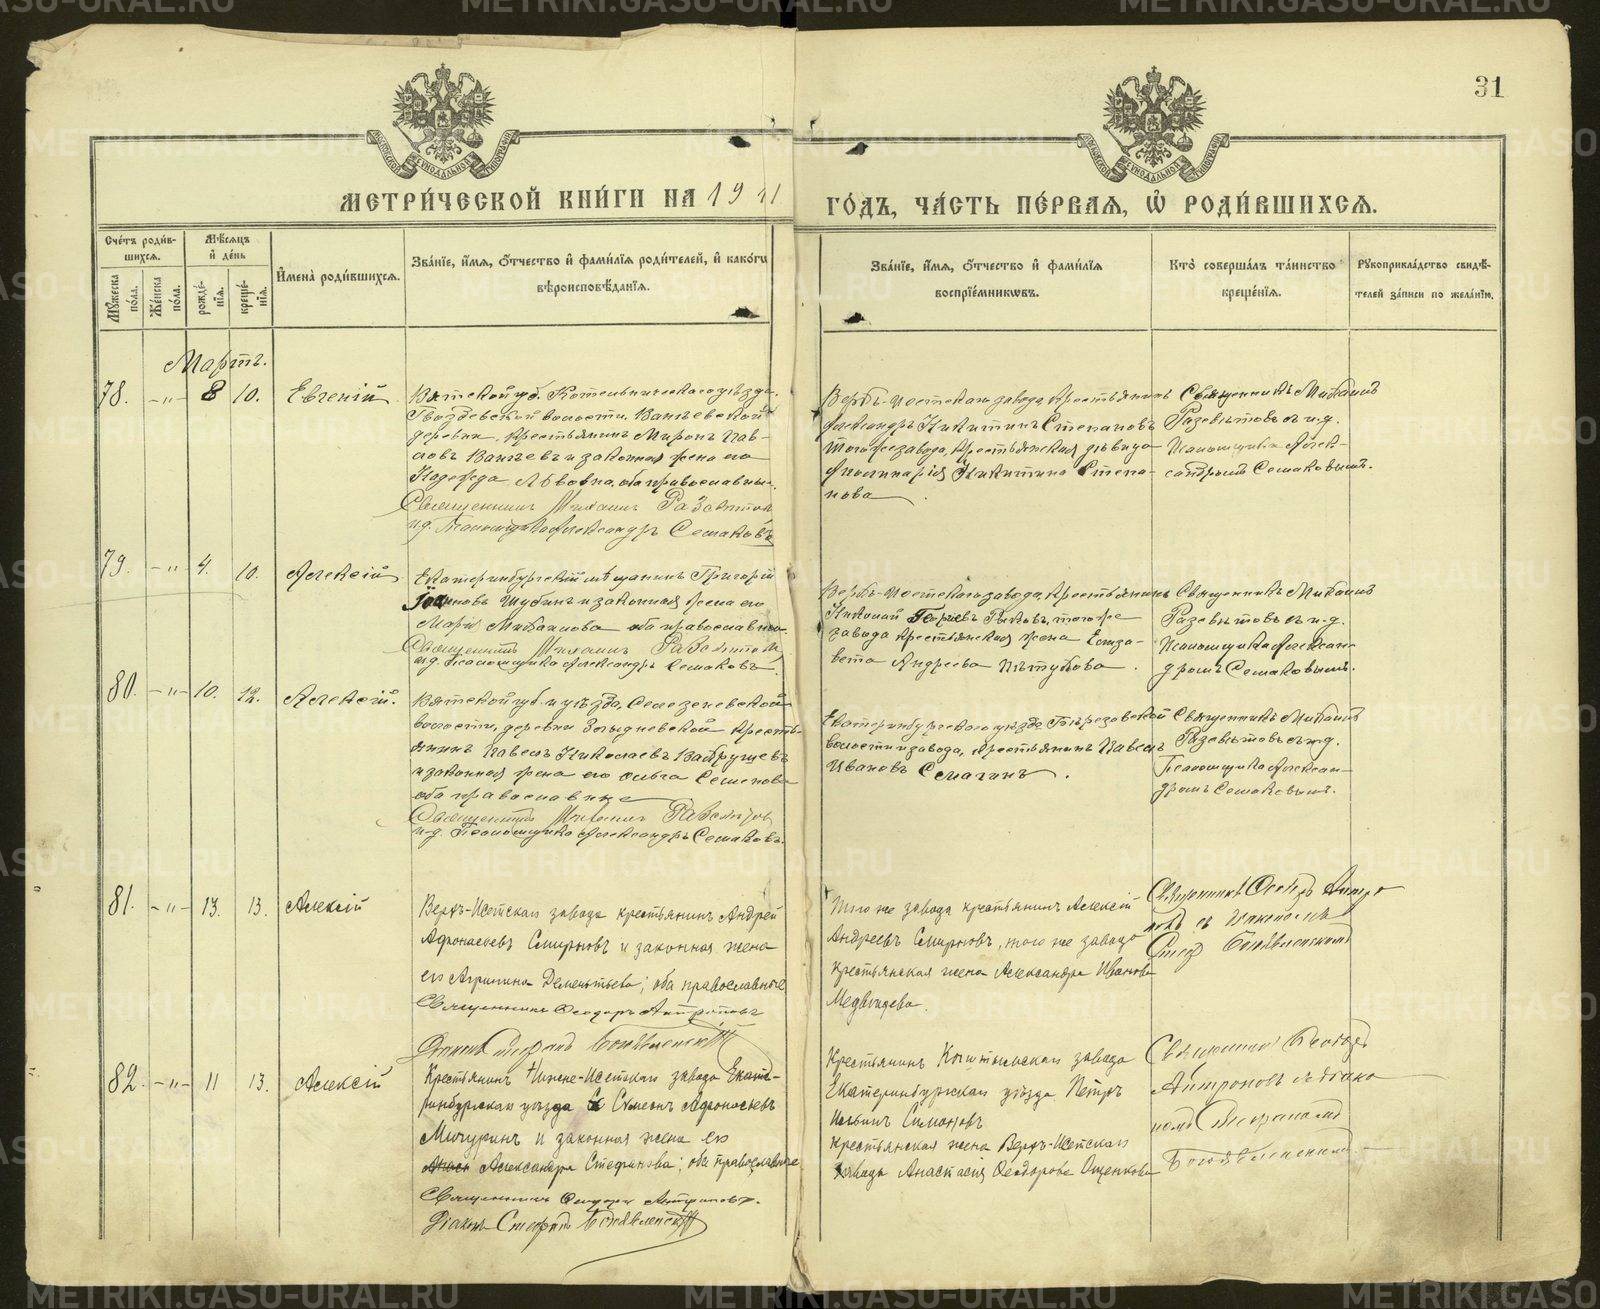 31
МЕТРИ́ЧЕСКОЙ КНИ́ГИ НА 1911
ГО́ДЪ, ЧА́СТЬ ПЕ́РВАЯ, Ѡ҆ РОДИ́ВШИХСѦ.
Сче́тъ роди́в-
шихсѧ.
Мѣ́сѧцъ
и҆ де́нь
Мꙋ́жеска по́ла.
Же́нска по́ла.
рожде́-
нїѧ.
креще́-
нїѧ.
И҆мена̀ роди́вшихсѧ.
Зва́нїе, и҆́мѧ, ѻ҆́тчество и҆ фами́лїѧ роди́телей, и҆ како́гѡ
вѣроисповѣ́данїѧ.
Зва́нїе, и҆́мѧ, ѻ҆́тчество и҆ фами́лїѧ
воспрїе́мникѡвъ.
Кто̀ соверша́лъ та́инство
креще́нїѧ.
Рꙋкоприкла́дство свидѣ́-
телей за́писи по жела́нїю.
Мартъ.
78. -„- 8 10. Евгеній
Вятской губ. Котельническаго уѣзда.
Гвоздевской волости, Вангевской
деревни, крестьянинъ Миронъ Пав-
ловъ Вангевъ и законная жена его
Надежда Львовна, оба православные.
Священникъ Михаилъ Разсвѣтовъ
и.д. Псаломщика Александръ Семаковъ
Верхъ-Исетскаго завода, крестьянинъ
Александръ Никитинъ Степановъ
того же завода, крестьянская дѣвица
Аполинарія Никитина Степа-
нова
Священникъ Михаилъ
Разсвѣтовъ съ и.д.
Псаломщика Алек-
сандромъ Семаковымъ.
79. -„- 4. 10. Алексій
Екатеринбургскій мѣщанинъ Григорій
Іоанновъ Шубинъ и законная жена его
Марія Михаилова оба православные.
Священникъ Михаилъ Разсвѣтовъ
и.д. Псаломщика Александръ Семаковъ.
Верхъ-Исетскаго завода, крестьянинъ
Николай Рыжовъ, того же
завода крестьянская жена Елиза-
вета Андреева Пѣтухова.
Священникъ Михаилъ
Разсвѣтовъ съ и.д.
Псаломщика Алексан-
дромъ Семаковымъ.
80. -„- 10. 12. Алексій.
Вятской губ. и уѣзда, Селезеневской
волости, деревни крестъ-
янинъ Павелъ Николаевъ Вахрушевъ
и законная жена его Ольга Семенова
оба православные
Священникъ Михаилъ Разсвѣтовъ
и.д. Псаломщика Александръ Семаковъ.
Екатеринбургскаго уѣзда Березовской
волости и завода, крестьянинъ Павелъ
Ивановъ Семагинъ.
Священникъ Михаилъ
Разсвѣтовъ съ и.д.
Псаломщика Алексан-
дромъ Семаковымъ.
81. -„- 13. 13. Алексій
Верхъ-Исетскаго завода крестьянинъ Андрей
Афонасьевъ Смирновъ и законная жена
его Агрипина Дементьева; оба православные
Священникъ Ѳеодоръ Антроповъ
Діаконъ Стефанъ Богоявленскій
Того же завода крестьянинъ Алексій
Андреевъ Смирновъ, того же завода
крестьянская жена Александра Иванова
Медвѣдева.
82. -„- 11 13. Алексій
Крестьянинъ Нижне-Исетскаго завода Екате-
ринбургскаго уѣзда Симеонъ Афонасьевъ
Мичуринъ и законная жена его
Александра Стефанова; оба православные
Священникъ Ѳеодоръ Антроповъ.
Діаконъ Стефанъ Богоявленскій
Крестьянинъ Кыштымскаго завода
Екатеринбургскаго уѣзда Петръ
Ильинъ Симановъ
крестьянская жена Верхъ-Исетскаго
завода Анастасія Ѳеодорова Ощепкова
Священникъ Ѳеодоръ
Антроповъ съ діако
номъ Стефаномъ
Богоявленскимъ